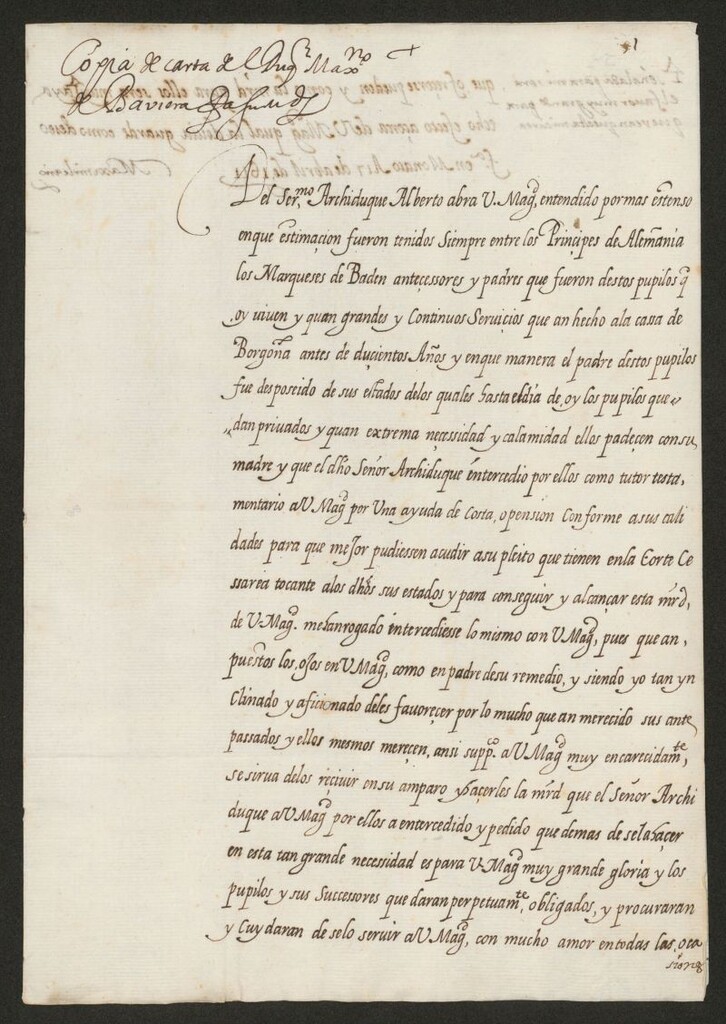 Copia de carta del Duqᵉ Maxⁿᵒ
de Baviera a su Mᵈ
1
Del Serᵐᵒ Archiduque Alberto abra V. Magᵈ, entendido por mas estenso
en que estimacion fueron tenidos Siempre entre los Principes de Alemania
los Marqueses de Baden anteçessores y padres que fueron destos pupilos q̃
oy viven y quan grandes y Continuos Servicios que an hecho ala cassa de
Borgoña antes de duçientos Años y enque manera el padre destos pupilos
fue desposeido de sus estados delos quales hasta eldia de oy los pupilos que
dan privados y quan extrema neçessidad y calamidad ellos padeçen consu
madre y que el dho Señor Archiduque intercedio por ellos como tutor testa,
mentario aV Magᵈ por Una ayuda de Costa, o pension Conforme asus cali
dades para que meJor pudiessen acudir asu pleito que tienen enla Corte Ce
ssarea tocante alos dhos sus estados y para conseguir y alcançar esta mrd,
de V. Magᵈ. mehanrogado intercediesse lo mismo con V Magᵈ, pues que an,
puestos los, oJos en V Magᵈ, como en padre desu remedio, y siendo yo tan yn
Clinado y aficionado deles favoreçer por lo mucho que an merecido sus ante
passados y ellos mesmos mereçen, ansi suppᶜᵒ aV Magᵈ muy encarecidamᵗᵉ,
se sirva delos reçivir ensu amparo y haçerles la mrd que el Señor Archi
duque aV Magᵈ por ellos a entercedido y pedido que demas de sela haçer
en esta tan grande neçessidad es para V. Magᵈ muy grande gloria y los
pupilos y sus Successores que daran perpetuamᵗᵉ, obligados, y procuraran
y Cuydaran de selo servir aV Magᵈ, con mucho amor entodas las, oca
siones